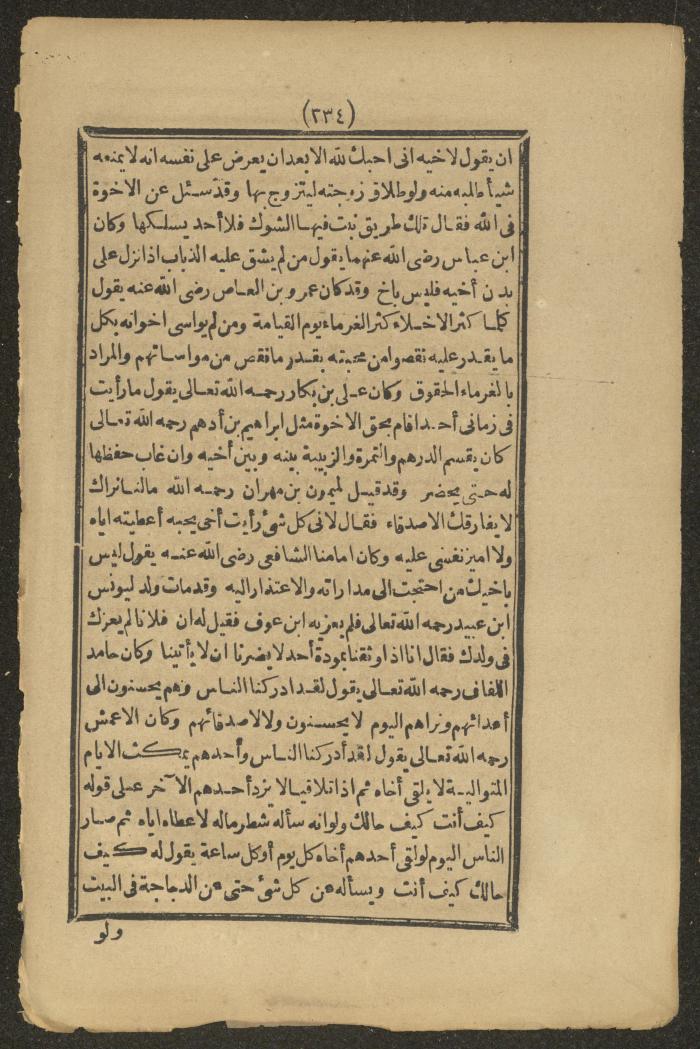 (٢٣٤)
ان يقول لاخيه انى احبك لله الا بعد ان يعرض على نفسه انه لا يمنعه
شيأ طلبه منه ولو طلاق زوجته ليتزوج بها وقد سئل عن الاخوة
فى الله فقال تلك طريق نبت فيها الشوك فلا أحد يسلكها وكان
ابن عباس رضى الله عنهما يقول من لم يشق عليه الذباب اذا نزل على
بدن أخيه فليس باخ وقد كان عمرو بن العاص رضى الله عنه يقول
كلما كثر الاخلاء كثر الغرماء يوم القيامة ومن لم يواسى اخوانه بكل
ما يقدر عليه نقصوا من محبته بقدر ما نقص من مواساتهم والمراد
بالغرماء الحقوق وكان على بن بكار رحمه الله تعالى يقول ما رأيت
فى زمانى أحدا قام بحق الاخوة مثل ابراهيم بن أدهم رحمه الله تعالى
كان يقسم الدرهم والتمرة والزبيبة بينه وبين أخيه وان غاب حفظها
له حتى يحضر وقد قيل لميمون بن مهران رحمه الله مالنا نراك
لا يفارقك الاصدقاء فقال لانى كل شئ رأيت أخى يحبه أعطيته اياه
ولا اميز نفسى عليه وكان امامنا الشافعى رضى الله عنه يقول ليس
باخيك من احتجت الى مداراته والاعتذار اليه وقد مات ولد ليونس
ابن عبيد رحمه الله تعالى فلم يعزيه ابن عوف فقيل له ان فلانا لم يعزك
فى ولدك فقال انا اذا وثقنا بمودة أحد لا يضرنا ان لا يأتينا وكان حامد
اللفاف رحمه الله تعالى يقول لقد ادركنا الناس وهم يحسنون الى
أعدائهم ونراهم اليوم لا يحسنون ولا لاصدقائهم وكان الاعمش
رحمه الله تعالى يقول لقد أدركنا الناس وأحدهم يمكث الايام
المتوالية لا يلقى أخاه ثم اذا تلاقيا لا يزد أحدهم الآخر على قوله
كيف أنت كيف حالك ولو انه سأله شطر ماله لاعطاه اياه ثم صار
الناس اليوم لو لقى أحدهم أخاه كل يوم أو كل ساعة يقول له كيف
حالك كيف أنت ويسأله عن كل شئ حتى عن الدجاجة فى البيت
ولو